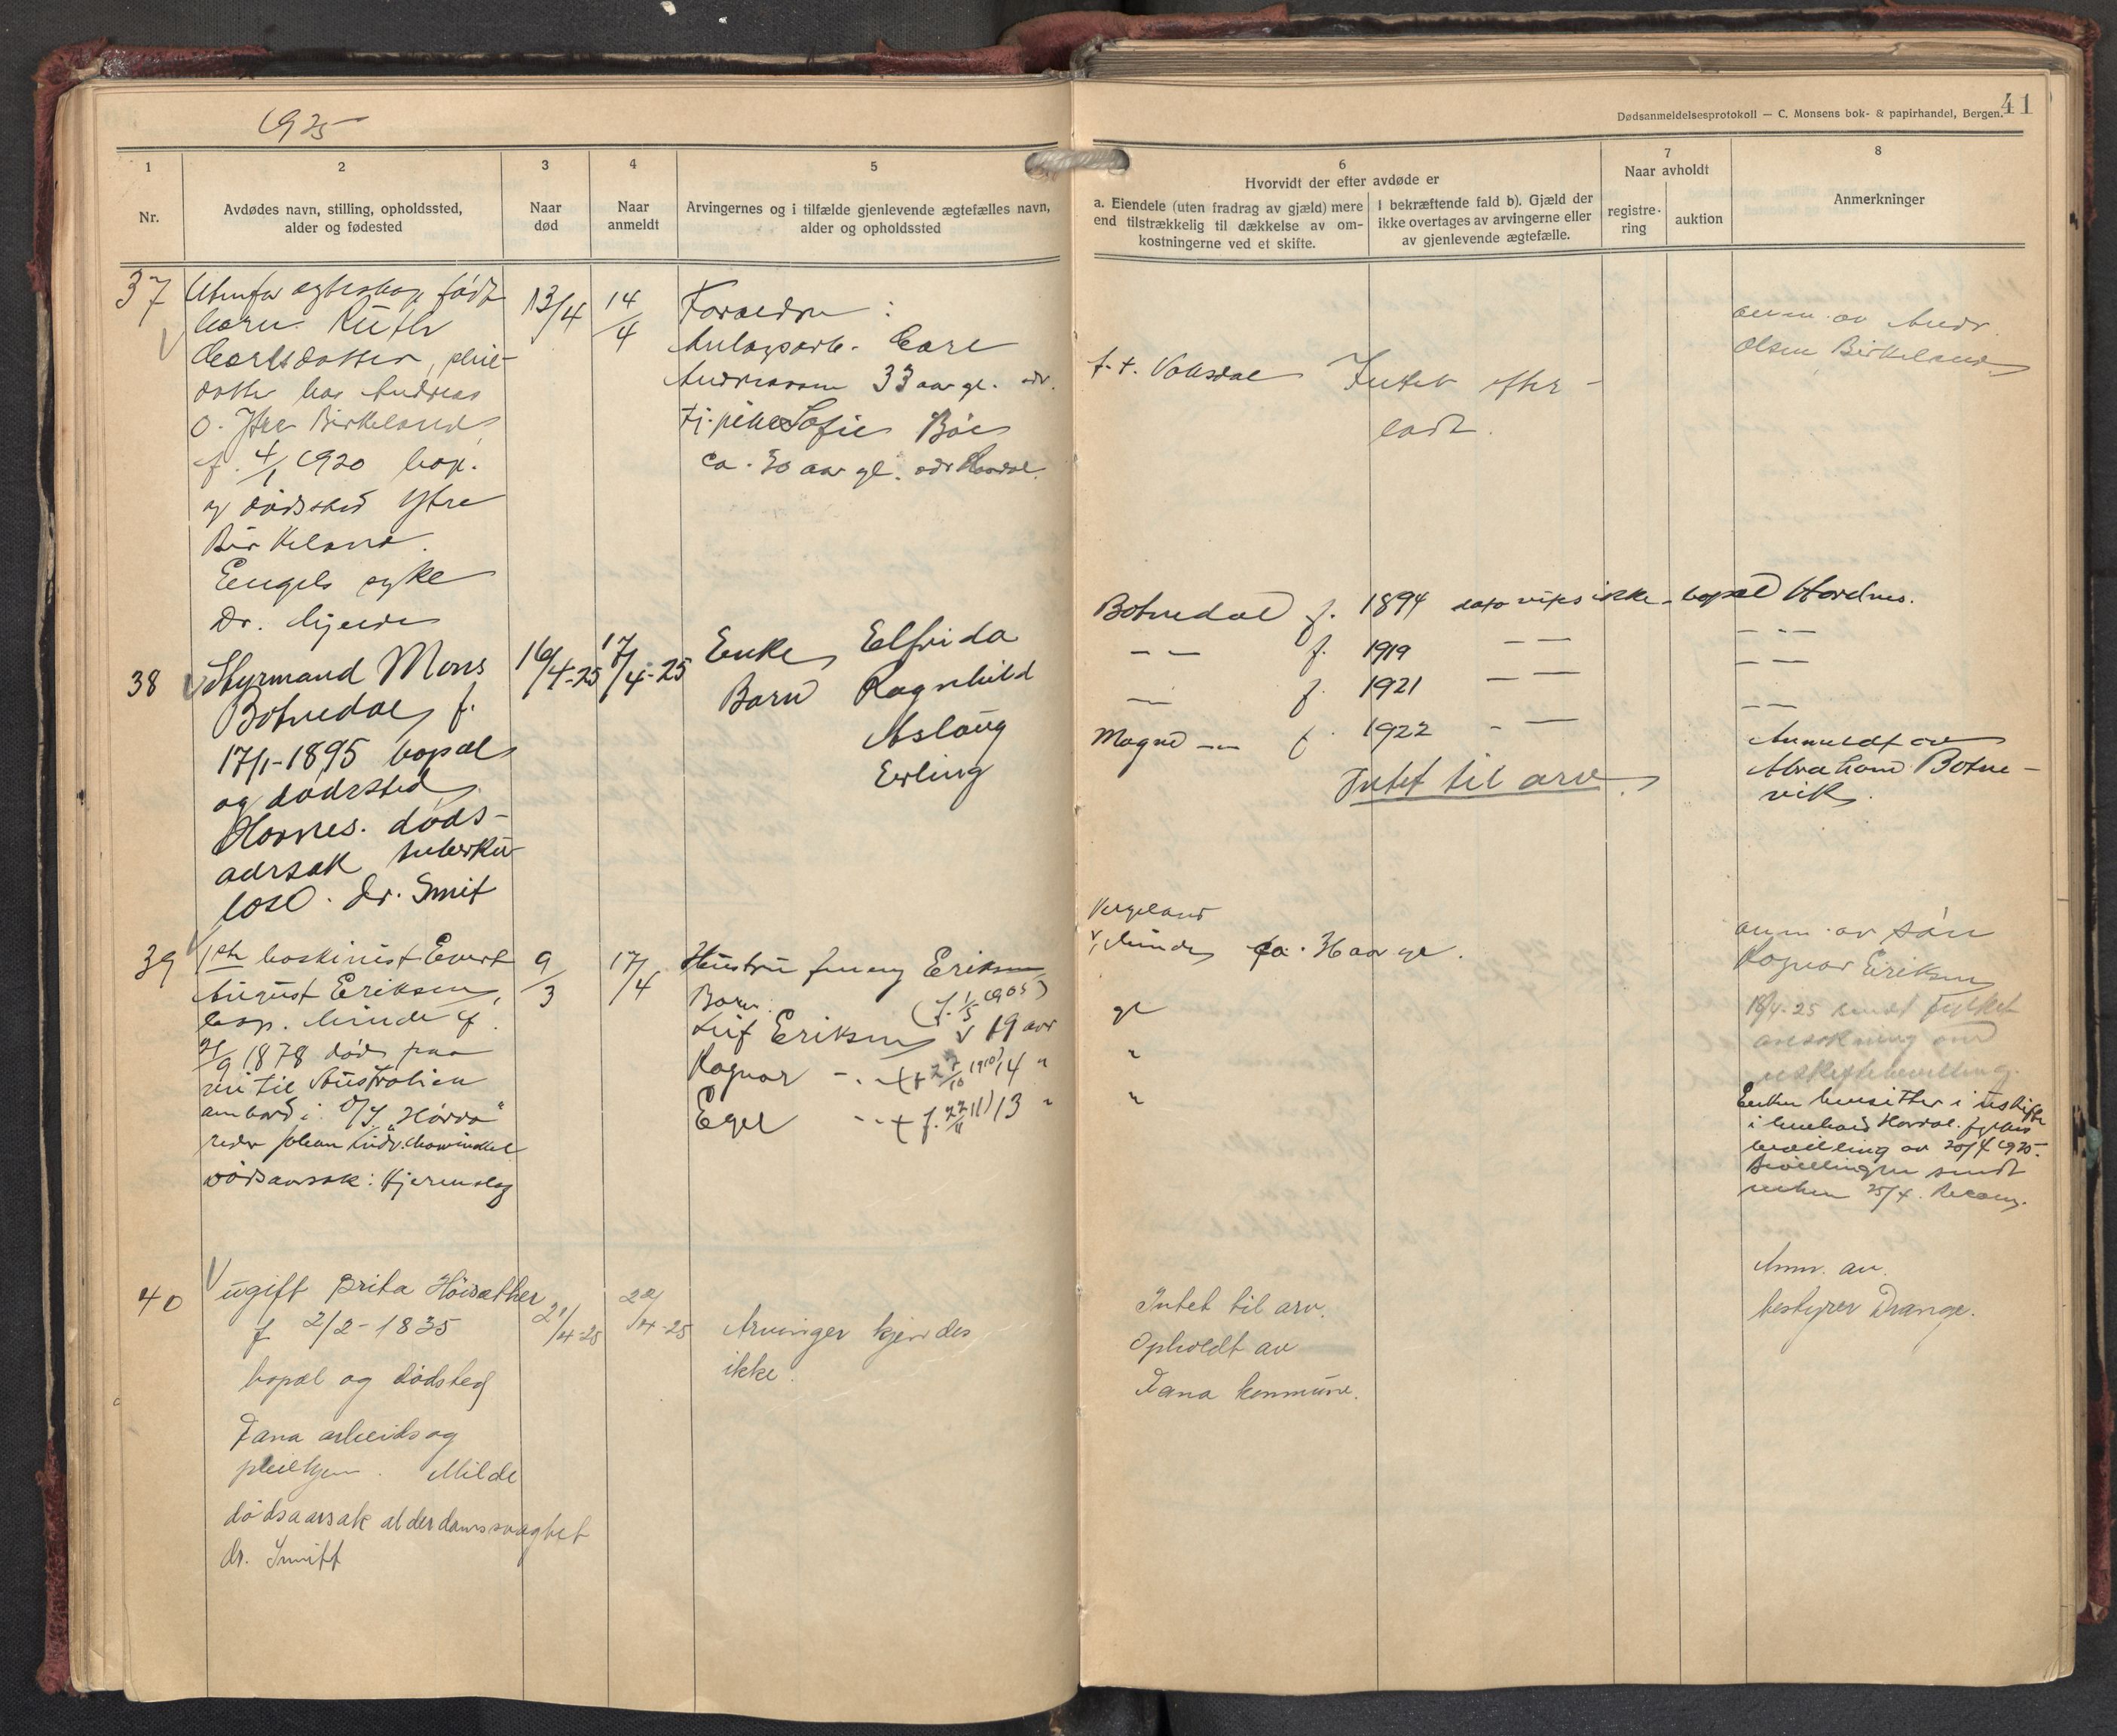 1925
41
Dødsanmeldelsesprotokoll — C. Monsens bok- & papirhandel, Bergen.
1
2
3
4
5
6
7
8
Nr.
Avdødes navn, stilling, opholdssted,
alder og fødested
Naar
død
Naar
anmeldt
Arvingernes og i tilfælde gjenlevende ægtefælles navn,
alder og opholdssted
Hvorvidt der efter avdøde er
a. Eiendele (uten fradrag av gjæld) mere
end tilstrækkelig til dækkelse av om-
kostningerne ved et skifte.
I bekræftende fald b). Gjæld der
ikke overtages av arvingerne eller
av gjenlevende ægtefælle.
Naar avholdt
registre-
ring
auktion
Anmerkninger
37
Utenfor egteskap født
barn Ruth
Carlsdotter, pleie-
dotter hos Andreas
O. Ytre Birkeland,
f. 4/1 1920 bop.
og dødssted Ytre
Birkeland.
Engels syke
Dr.
13/4
14/4
Forældre :
Anlægsarb. Carl
Andreassen 33 aar gl. adr.
Tj.pike Sofie Böe
ca. 30 aar gl. adr
f. t. Vaksdal
Intet efter-
ladt.
anm. av Andr.
Olsen Birkeland
38
Styrmand Mons
Botnedal f.
17/1-1895 bopæl
og dødssted
Hornes. døds-
aarsak tuberku-
lose. Dr. Smit
16/4-25
17/4-25
Enke Elfrida
Barn Ragnhild
Aslaug
Erling
Botnedal f. 1894 dato vites ikke - bopæl Hordnes.
— — f. 1919 — — — - —
— f. 1921 — — — —
Magne — f. 1922 - — — —
Intet til arv.
Anmeldt av
Abraham Botne-
vik.
39
1ste maskinist Evert
August Eriksen,
bop. Minde f.
21/9 1878 død paa
vei til Australien
ombord i D/S "Hörda"
reder Johan Ludv. Mowinckel
dødsaarsak: Hjerneslag
9/3
17/4
Hustru Eriksen
Barn: (f. 1/5 1905)
Leif Eriksen 19 aar
Ragnar - " - (f 27/10 1910) 14 "
Egil - " - (f. 22/11 11) 13 "
Vergeland
Minde ca. 36 aar gl.
gl
"
"
anm. av søn
Ragnar Eriksen
18/4-25 sendt fylket
ansøkning om
uskiftebevilling.
Enken hensitter i uskifte
i henhold Hordal. fylkes
bevilling av 20/4 1925.
Bevillingen sendt
enken 25/4. Recom.
40
ugift Brita Höisæther
f 2/2-1835
bopæl og dødsted
Fana arbeids og
pleiehjem. Milde
dødsaarsak alderdomssvaghet
dr. Smitt
21/4-25
22/4-25
Arvinger kjendes
ikke.
Intet til arv.
Opholdt av
Fana kommune.
Anm. av.
bestyrer Drange.